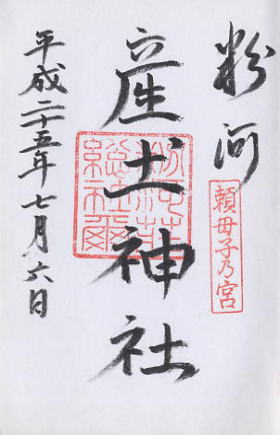 粉河
頼母子乃宮
産土神社
平成二十五年七月六日